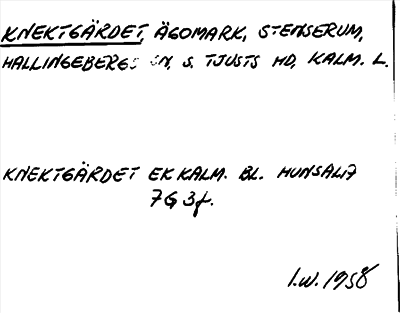 KNEKTGÄRDET, ÄGOMARK, STENSERUM,
HALLINGEBERGS SN, S. TJUSTS HD, KALM. L.
KNEKTGÄRDET EK KALM. BL. HUNSALA
7G 3f.
I.W. 1958